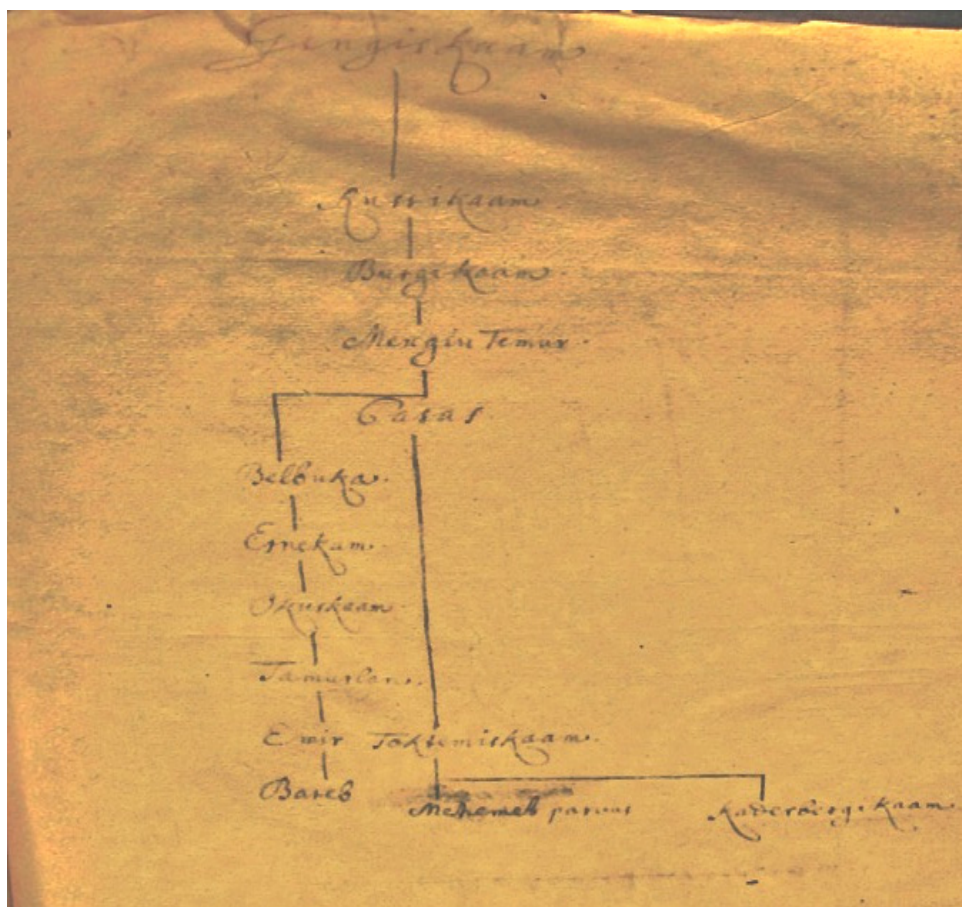 Gingis kaam
Kussikaam
Burgi kaam
Mengiu Temur
Casas
Belbuka
Ernekam
Okuskaam
Tamurlan
Emir Toktemiskaam
Bareb
Mehemeb parvus Kaderbergi kaam